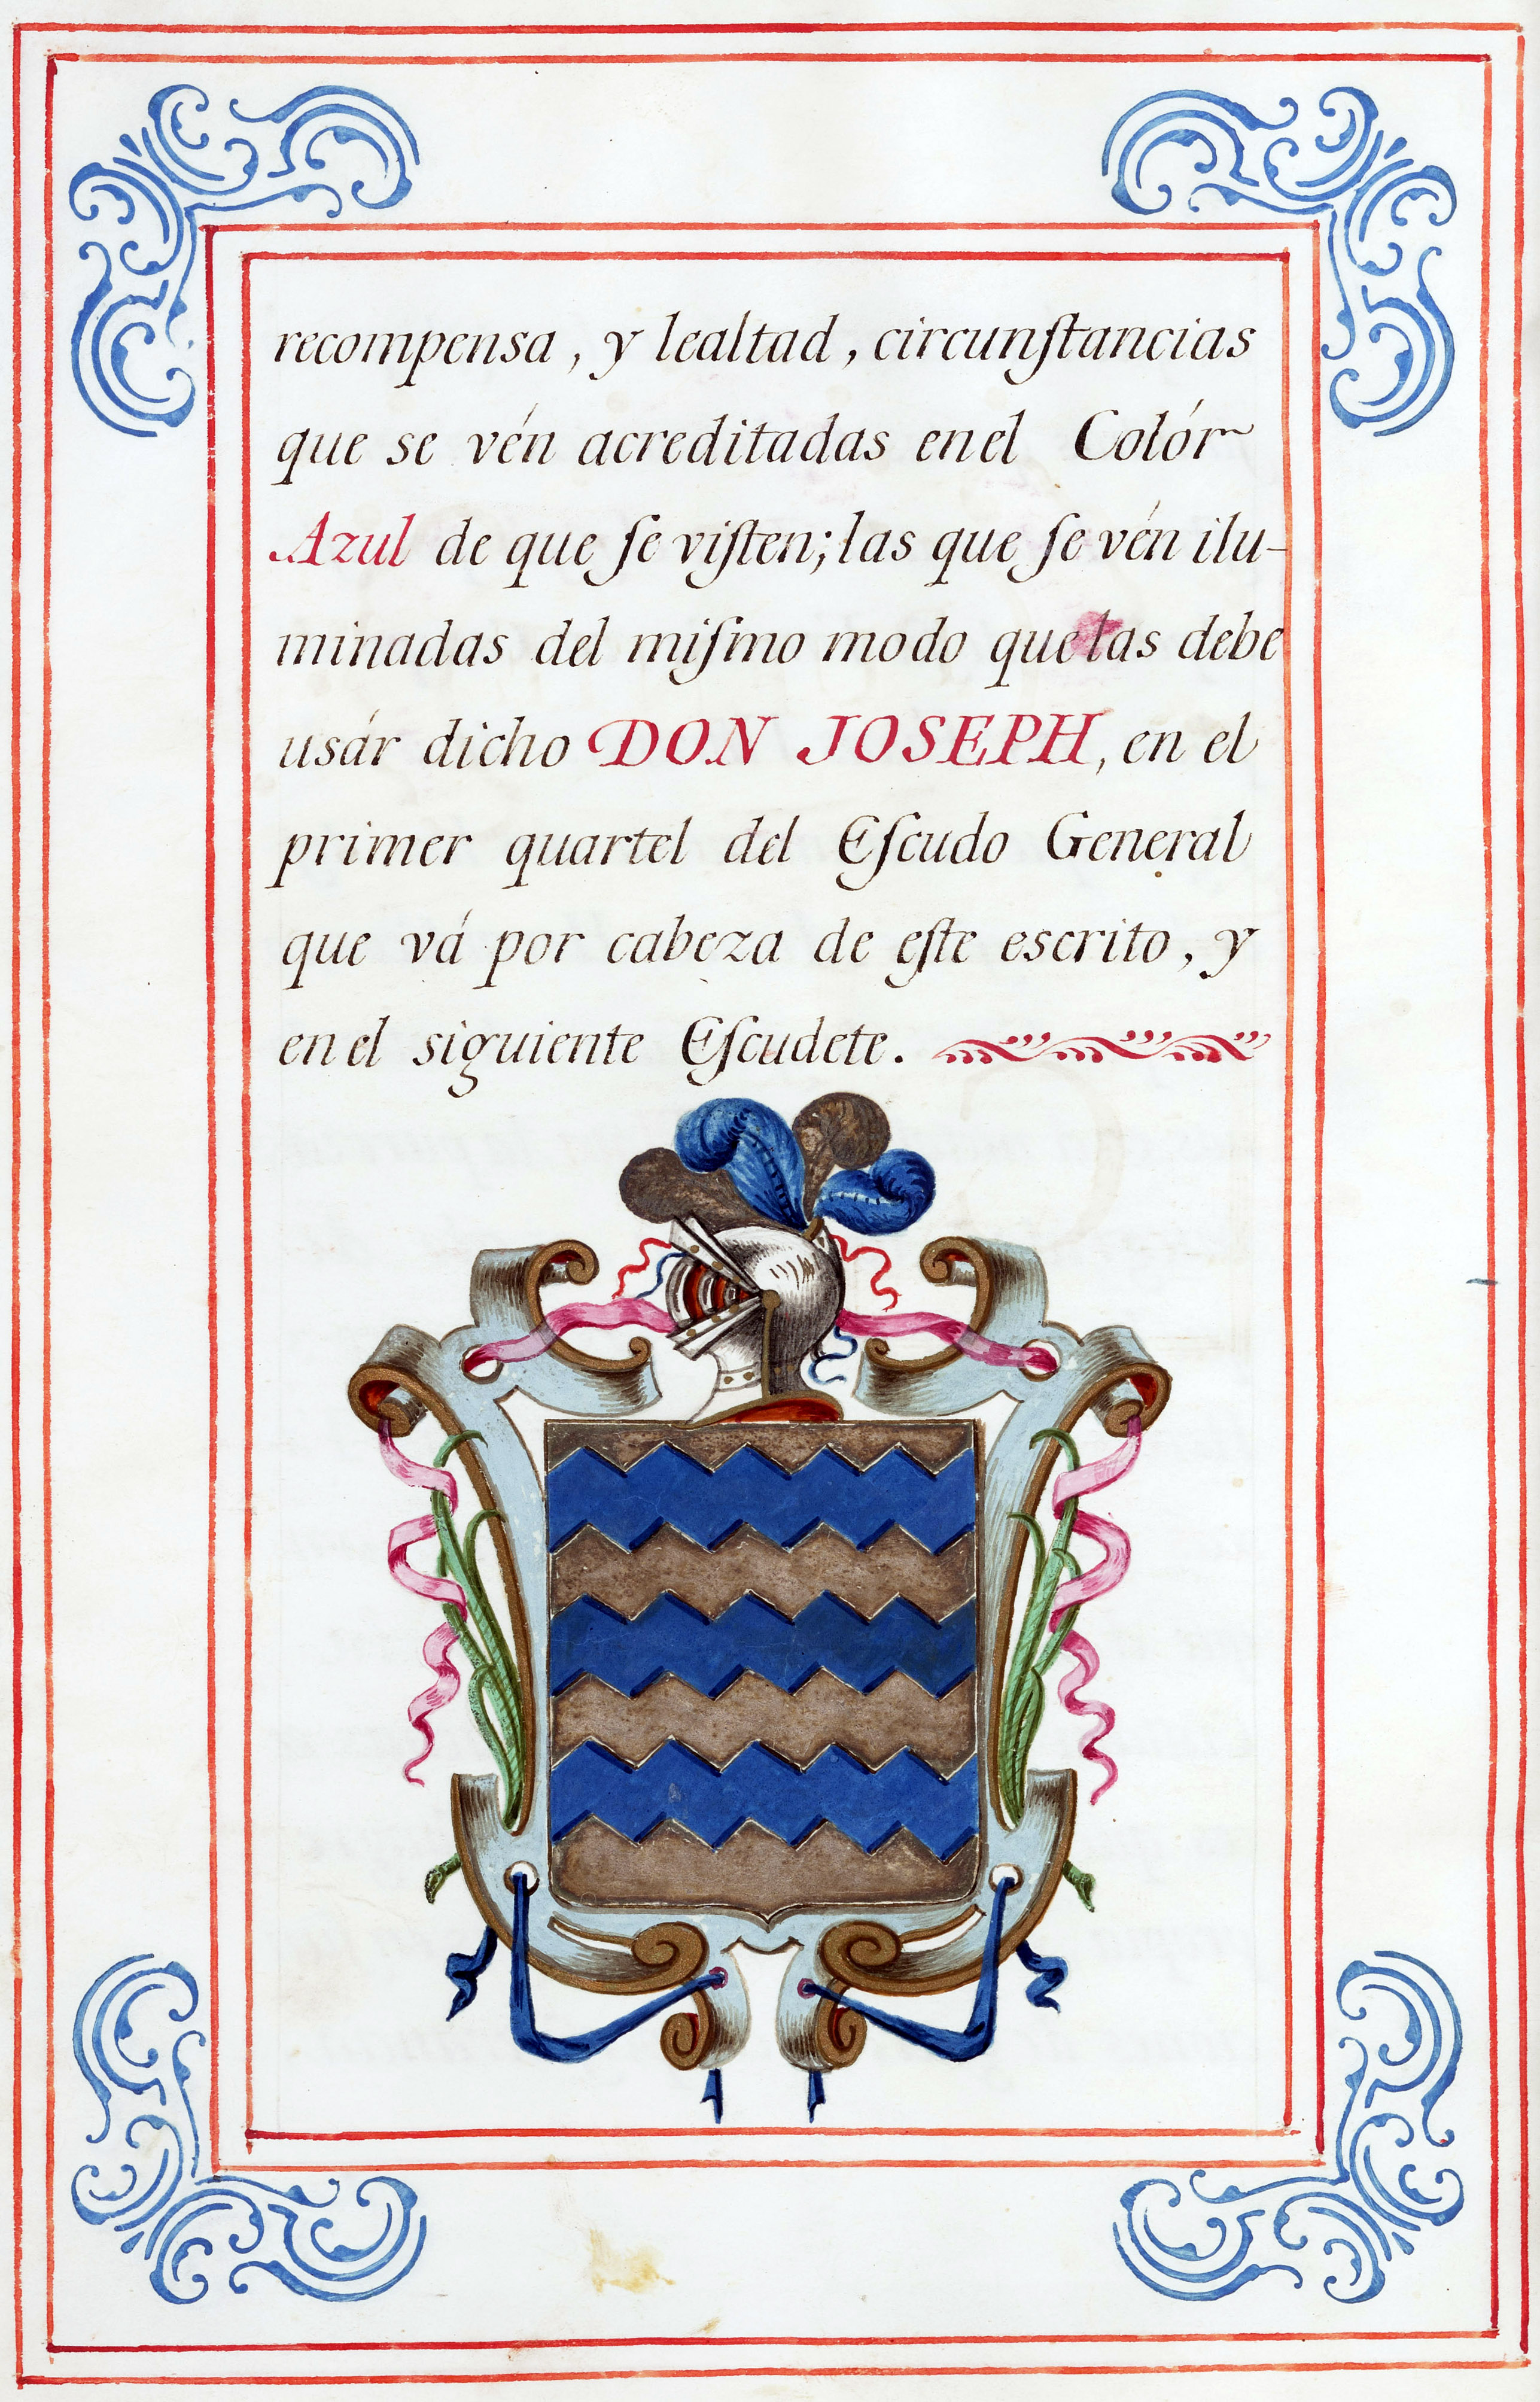 recompensa, y lealtad, circunſtancias
que se vén acreditadas en el Colór
Azul de que ſe viſten; las que ſe vén ilu-
minadas del miſmo modo que las debe
usár dicho DON JOSEPH, en el
primer quartel del Eſcudo General
que vá por cabeza de eſte escrito, y
en el siguiente Eſcudete.